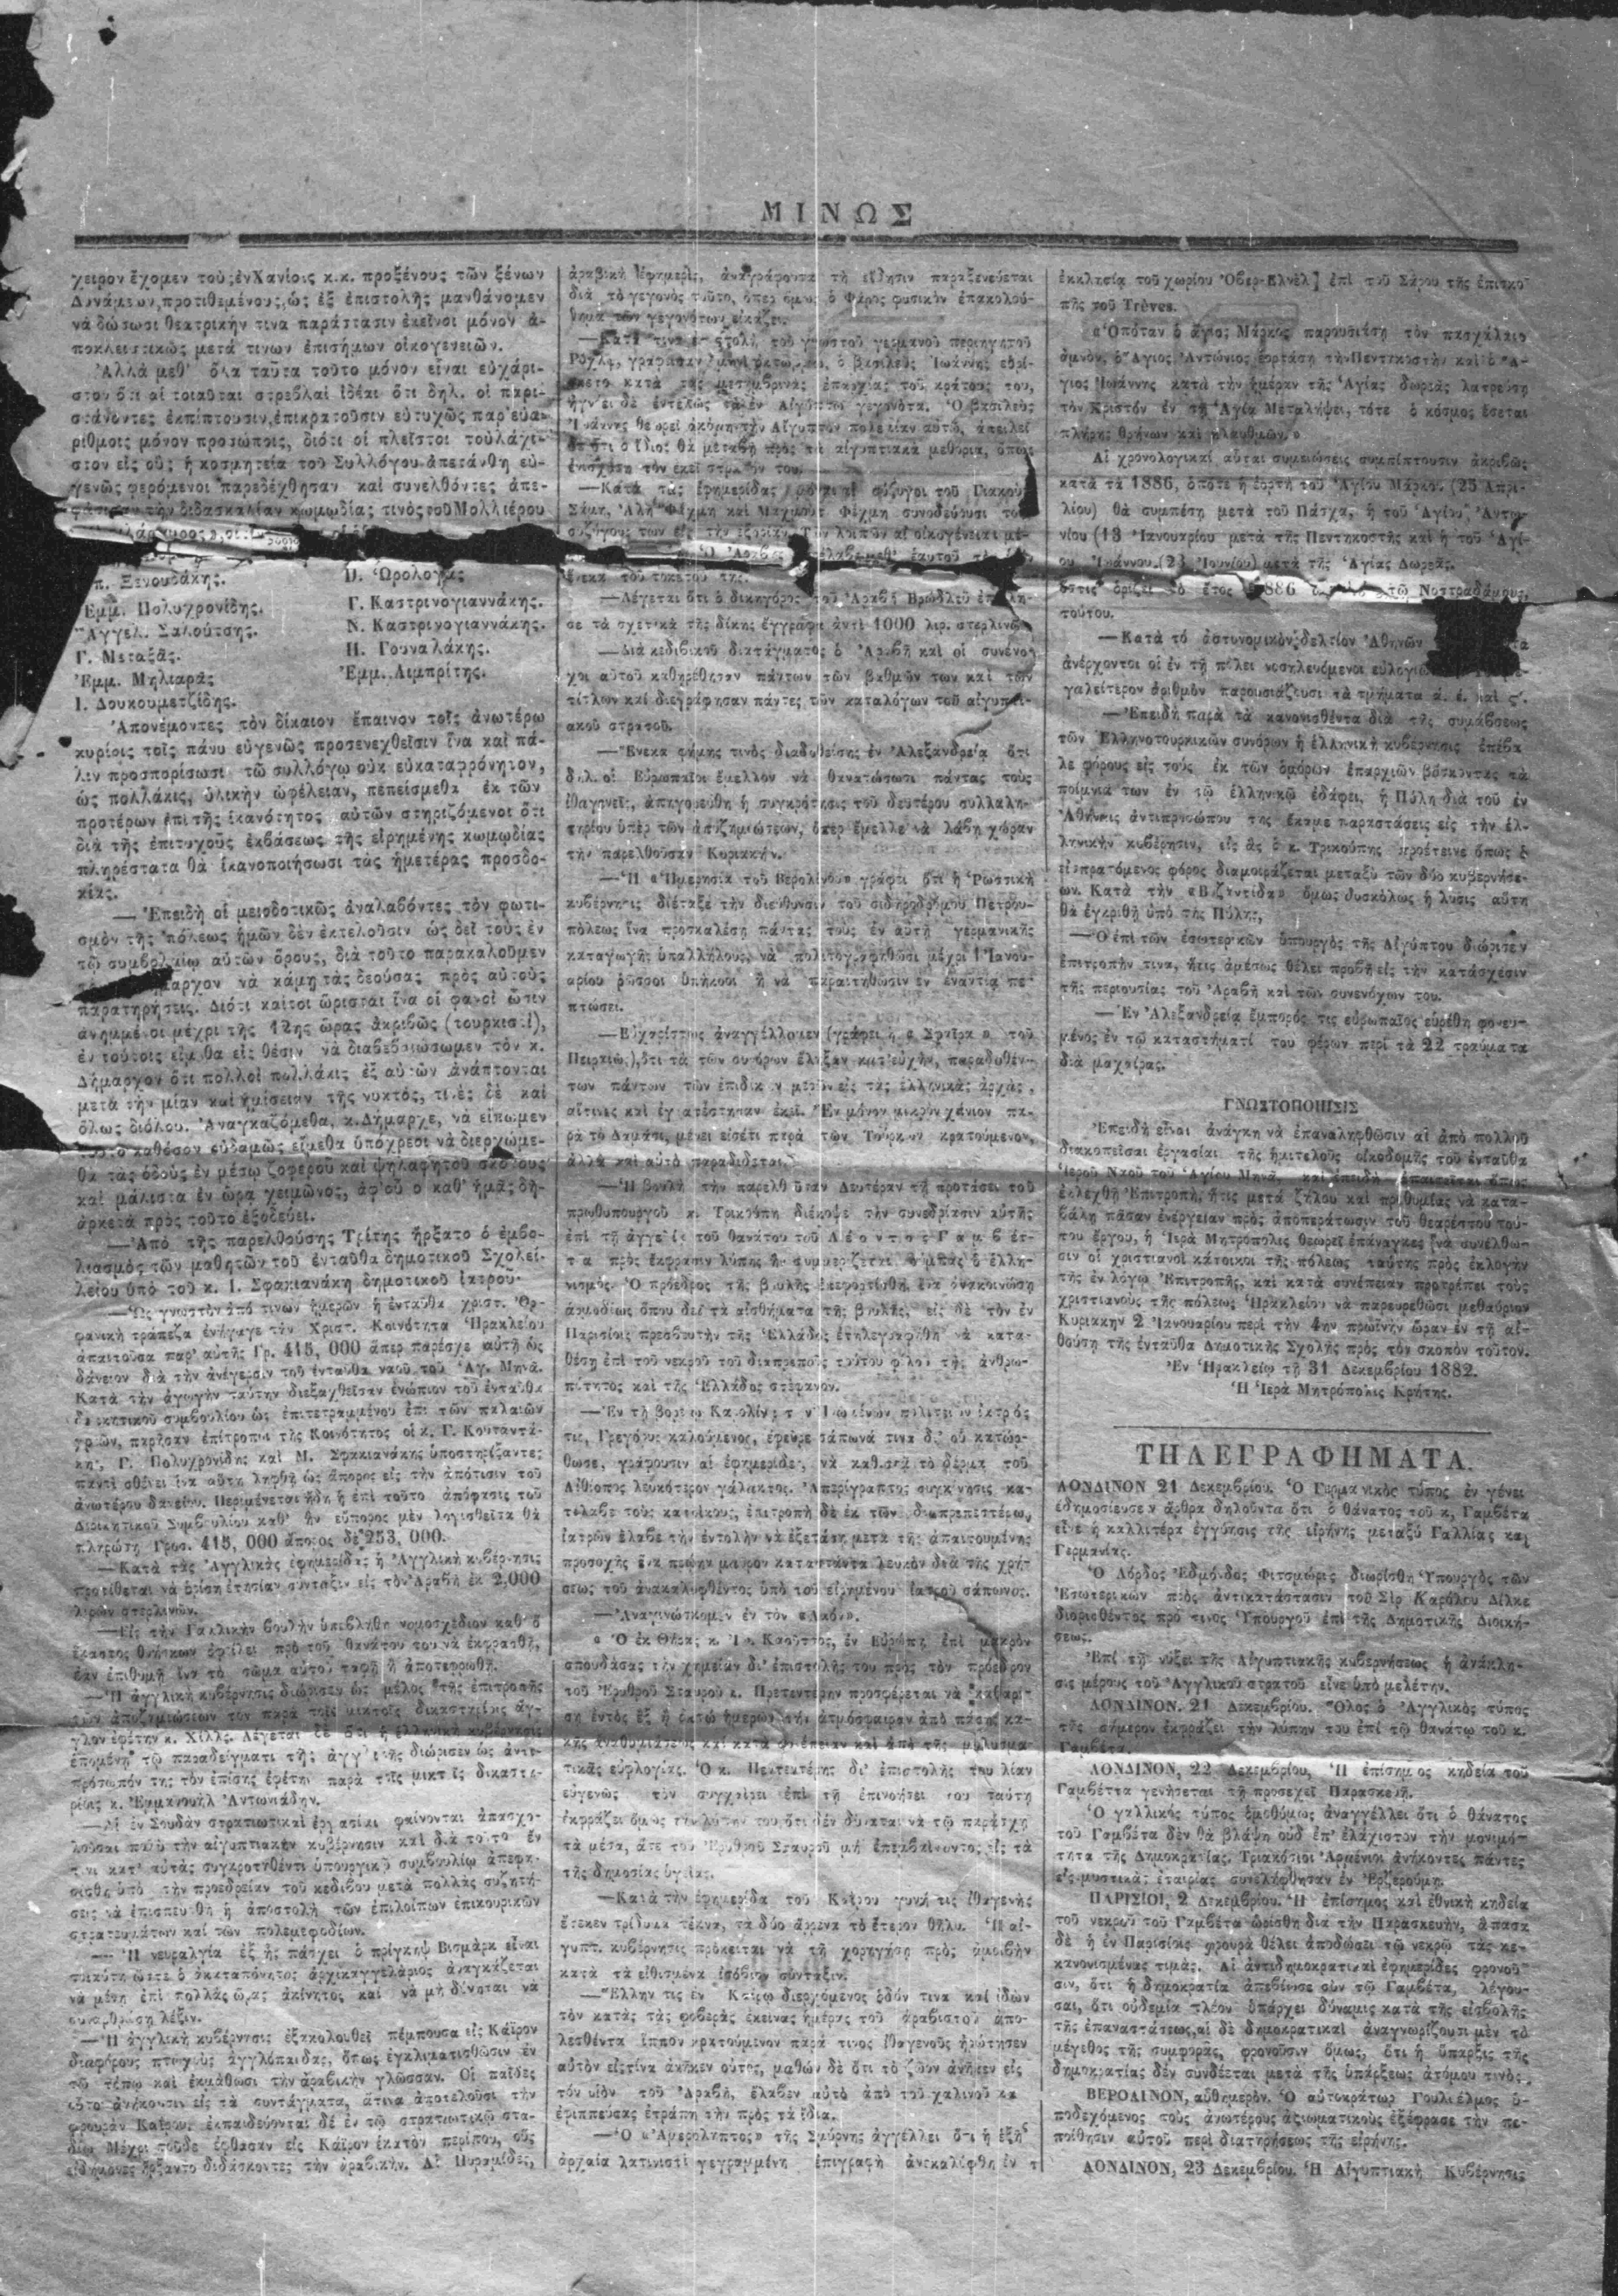 ΜΙΝΩΣ
χειρον ἔχομεν τοὺς ἐν Χανίοις κ.κ. προξένους τῶν ξένων
Δυνάμεων, προτιθεμένους, ὡς ἐξ ἐπιστολῆς μανθάνομεν
νὰ δώσωσι θεατρικήν τινα παράστασιν ἐκεῖνοι μόνον ἀ-
ποκλειστικῶς μετά τινων ἐπισήμων οἰκογενειῶν.
Ἀλλὰ μεθ' ὅλα ταῦτα τοῦτο μόνον εἶναι εὐχάρι-
στον ὅτι αἱ τοιαῦται στρεβλαὶ ἰδέαι ὅτι δηλ. οἱ παρι-
στάνοντες ἐκπίπτουσιν, ἐπικρατοῦσιν εὐτυχῶς παρ' εὐα-
ρίθμοις μόνον προσώποις, διότι οἱ πλεῖστοι τοὐλάχι-
στον εἰς οὓς ἡ κοσμητεία τοῦ Συλλόγου ἀπετάνθη εὐ-
γενῶς φερόμενοι παρεδέχθησαν καὶ συνελθόντες ἀπε-
φάσισαν τὴν διδασκαλίαν κωμωδίας τινὸς τοῦ Μολλιέρου
π. Ξενουδάκης.
Ἐμμ. Πολυχρονίδης.
Ἀγγελ. Σαλούτσης.
Γ. Μεταξᾶς.
Ἐμμ. Μηλιαρᾶς
Ι. Δουκουμετζίδης.
Ὡρολογᾶς
Γ. Καστρινογιαννάκης.
Ν. Καστρινογιαννάκης.
Π. Γουναλάκης.
Ἐμμ. Λιμπρίτης.
Ἀπονέμοντες τὸν δίκαιον ἔπαινον τοῖς ἀνωτέρω
κυρίοις τοῖς πάνυ εὐγενῶς προσενεχθεῖσιν ἵνα καὶ πά-
λιν προσπορίσωσι τῷ συλλόγῳ οὐκ εὐκαταφρόνητον,
ὡς πολλάκις, ὑλικὴν ὠφέλειαν, πεπείσμεθα ἐκ τῶν
προτέρων ἐπὶ τῆς ἱκανότητος αὐτῶν στηριζόμενοι ὅτι
διὰ τῆς ἐπιτυχοῦς ἐκβάσεως τῆς εἰρημένης κωμωδίας
πληρέστατα θὰ ἱκανοποιήσωσι τὰς ἡμετέρας προσδο-
κίας.
— Ἐπειδὴ οἱ μειοδοτικῶς ἀναλαβόντες τὸν φωτι-
σμὸν τῆς πόλεως ἡμῶν δὲν ἐκτελοῦσιν ὡς δεῖ τοὺς ἐν
τῷ συμβολαίῳ αὐτῶν ὅρους, διὰ τοῦτο παρακαλοῦμεν
νὰ κάμῃ τὰς δεούσας πρὸς αὐτοὺς
παρατηρήσεις. Διότι καίτοι ὥρισται ἵνα οἱ φανοὶ ὦσιν
ἀνημμένοι μέχρι τῆς 12ης ὥρας ἀκριβῶς (τουρκιστί),
ἐν τούτοις εἴμεθα εἰς θέσιν νὰ διαβεβαιώσωμεν τὸν κ.
Δήμαρχον ὅτι πολλοὶ πολλάκις ἐξ αὐτῶν ἀνάπτονται
μετὰ τὴν μίαν καὶ ἡμίσειαν τῆς νυκτός, τινὲς δὲ καὶ
ὅλως διόλου. Ἀναγκαζόμεθα, κ. Δήμαρχε, νὰ εἴπωμεν
καθόσον οὐδαμῶς εἴμεθα ὑπόχρεοι νὰ διερχώμε-
θα τὰς ὁδοὺς ἐν μέσῳ ζοφεροῦ καὶ ψηλαφητοῦ σκότους
καὶ μάλιστα ἐν ὥρᾳ χειμῶνος, ἀφ' οὗ ὁ καθ' ἡμᾶς δῆ-
ἀρκετὰ πρὸς τοῦτο ἐξοδεύει.
—Ἀπὸ τῆς παρελθούσης Τρίτης ἤρξατο ὁ ἐμβο-
λιασμὸς τῶν μαθητῶν τοῦ ἐνταῦθα δημοτικοῦ Σχολεί-
λείου ὑπὸ τοῦ κ. Ι. Σφακιανάκη δημοτικοῦ ἰατροῦ.
—Ὡς γνωστὸν ἀπό τινων ἡμερῶν ἡ ἐνταῦθα χριστ. Ὀρ-
φανικὴ τράπεζα ἐνήγαγε τὴν Χριστ. Κοινότητα Ἡρακλείου
ἀπαιτοῦσα παρ' αὐτῆς Γρ. 415, 000 ἅπερ παρέσχε αὐτῇ ὡς
δάνειον διὰ τὴν ἀνέγερσιν τοῦ ἐνταῦθα ναοῦ τοῦ Ἁγ. Μηνᾶ.
Κατὰ τὴν ἀγωγὴν ταύτην διεξαχθεῖσαν ἐνώπιον τοῦ ἐνταῦθα
διοικητικοῦ συμβουλίου ὡς ἐπιτετραμμένου ἐπὶ τῶν παλαιῶν
Γ. Πολυχρονίδης καὶ Μ. Σφακιανάκης ὑποστηρίξαντες
παντὶ σθένει ἵνα αὕτη ληφθῇ ὡς ἄπορος εἰς τὴν ἀπότισιν τοῦ
ἀνωτέρου δανείου. Περιμένεται ἤδη ἡ ἐπὶ τοῦτο ἀπόφασις τοῦ
Διοικητικοῦ Συμβουλίου καθ' ἣν εὔπορος μὲν λογισθεῖσα θὰ
πληρώσῃ Γροσ. 415, 000 ἄπορος δὲ 253, 000.
—Κατὰ τὰς Ἀγγλικὰς ἐφημερίδας ἡ Ἀγγλικὴ κυβέρνησις
προτίθεται νὰ ὁρίσῃ ἐτησίαν σύνταξιν εἰς τὸν Ἀραβῆ ἐκ 2,000
λιρῶν στερλινῶν.
—Εἰς τὴν Γαλλικὴν βουλὴν ὑπεβλήθη νομοσχέδιον καθ' ὃ
ἕκαστος θνήσκων ὀφείλει πρὸ τοῦ θανάτου του νὰ ἐκφρασθῇ,
ἐὰν ἐπιθυμῇ ἵνα τὸ σῶμα αὐτοῦ ταφῇ ἢ ἀποτεφρωθῇ.
—Ἡ ἀγγλικὴ κυβέρνησις διώρισεν ὡς μέλος τῆς ἐπιτροπῆς
τῶν ἀποζημιώσεων τὸν παρὰ τοῖς μικτοῖς δικαστηρίοις ἄγ-
γλον ἐφέτην κ. Χίλλς. Λέγεται δὲ ὅτι ἡ ἑλληνικὴ κυβέρνησις
ἑπομένη τῷ παραδείγματι τῆς ἀγγλικῆς διώρισεν ὡς ἀντι-
πρόσωπόν της τὸν ἐπίσης ἐφέτην παρὰ τοῖς μικτοῖς δικαστη-
ρίοις κ. Ἐμμανουὴλ Ἀντωνιάδην.
—Αἱ ἐν Σουδὰν στρατιωτικαὶ ἐργασίαι φαίνονται ἀπασχο-
λοῦσαι πολὺ τὴν αἰγυπτιακὴν κυβέρνησιν καὶ διὰ τοῦτο ἔν
τινι κατ' αὐτὰς συγκροτηθέντι ὑπουργικῷ συμβουλίῳ ἀπεφα-
σίσθη ὑπὸ τὴν προεδρείαν τοῦ κεδίβου μετὰ πολλὰς συζητή-
σεις νὰ ἐπισπευσθῇ ἡ ἀποστολὴ τῶν ἐπιλοίπων ἐπικουρικῶν
στρατευμάτων καὶ τῶν πολεμεφοδίων.
— Ἡ νευραλγία ἐξ ἧς πάσχει ὁ πρίγκηψ Βίσμαρκ εἶναι
τοιαύτη ὥστε ὁ ἀκαταπόνητος ἀρχικαγγελάριος ἀναγκάζεται
νὰ μένῃ ἐπὶ πολλὰς ὥρας ἀκίνητος καὶ νὰ μὴ δύναται νὰ
συναρθρώσῃ λέξιν.
—Ἡ ἀγγλικὴ κυβέρνησις ἐξακολουθεῖ πέμπουσα εἰς Κάϊρον
διαφόρους πτωχοὺς ἀγγλόπαιδας, ὅπως ἐγκλιματισθῶσιν ἐν
τῷ τόπῳ καὶ ἐκμάθωσι τὴν ἀραβικὴν γλῶσσαν. Οἱ παῖδες
οὗτοι ἀνήκουσιν εἰς τὰ συντάγματα, ἅτινα ἀποτελοῦσι τὴν
φρουρὰν Καΐρου, ἐκπαιδεύονται δὲ ἐν τῷ στρατιωτικῷ στα-
δίῳ Μέχρι τοῦδε ἔφθασαν εἰς Κάϊρον ἑκατὸν περίπου, οὓς
εἰδήμονες ἤρξαντο διδάσκοντες τὴν ἀραβικήν. Αἱ Πυραμίδες,
ἀραβικὴ ἐφημερὶς, ἀναγράφουσα τὴ εἴδησιν παραξενεύεται
διὰ τὸ γεγονὸς τοῦτο, ὅπερ ὅμως ὁ Φάρος φυσικὸν ἐπακολού-
θημα τῶν γεγονότων εἰκάζει.
—Κατά τινα ἐπιστολὴν τοῦ γνωστοῦ γερμανοῦ περιηγητοῦ
ὁ βασιλεὺς Ἰωάννης εὑρί-
σκετο κατὰ τὰς μεσημβρινὰς ἐπαρχίας τοῦ κράτους του,
ἠγνόει δὲ ἐντελῶς τὰ ἐν Αἰγύπτῳ γεγονότα. Ὁ βασιλεὺς
Ἰωάννης θεωρεῖ ἀκόμη τὴν Αἴγυπτον πολεμίαν αὐτῷ, ἀπειλεῖ
δὲ ὅτι ὁ ἴδιος θὰ μεταβῇ πρὸς τὰ αἰγυπτιακὰ μεθόρια, ὅπως
ἐνισχύσῃ τὸν ἐκεῖ στρατόν του.
—Κατὰ τὰς ἐφημερίδας σύζυγοι τοῦ Γιακοὺπ
Σάμη, Ἀλῆ Φέχμη καὶ Μαχμοὺτ Φέχμη συνοδεύουσι τοὺς
συζύγους των εἰς τὴν ἐξορίαν. Τῶν λοιπῶν αἱ οἰκογένειαι μέ-
ἕνεκα τοῦ τοκετοῦ της.
—Λέγεται ὅτι ὁ δικηγόρος τοῦ Ἀραβῆ Βρώδλεϋ ἐπώλη-
σε τὰ σχετικὰ τῆς δίκης ἔγγραφα ἀντὶ 1000 λιρ. στερλινῶν
—Διὰ κεδιβικοῦ διατάγματος ὁ Ἀραβῆ καὶ οἱ συνένο-
χοι αὐτοῦ καθῃρέθησαν πάντων τῶν βαθμῶν των καὶ τῶν
τίτλων καὶ διεγράφησαν πάντες τῶν καταλόγων τοῦ αἰγυπτι-
ακοῦ στρατοῦ.
—Ἕνεκα φήμης τινὸς διαδοθείσης ἐν Ἀλεξανδρείᾳ ὅτι
δηλ. οἱ Εὐρωπαῖοι ἔμελλον νὰ θανατώσωσι πάντας τοὺς
ἰθαγενεῖς, ἀπηγορεύθη ἡ συγκρότησις τοῦ δευτέρου συλλαλη-
τηρίου ὑπὲρ τῶν ἀποζημιώσεων, ὅπερ ἔμελλε νὰ λάβῃ χώραν
τὴν παρελθοῦσαν Κυριακήν.
—Ἡ «Ἡμερησία τοῦ Βερολίνου» γράφει ὅτι ἡ Ῥωσσικὴ
κυβέρνησις διέταξε τὴν διεύθυνσιν τοῦ σιδηροδρόμου Πετρου-
πόλεως ἵνα προσκαλέσῃ πάντας τοὺς ἐν αὐτῇ γερμανικῆς
καταγωγῆς ὑπαλλήλους, νὰ πολιτογραφηθῶσι μέχρι 1 Ἰανου-
αρίου ῥῶσσοι ὑπήκοοι ἢ νὰ παραιτηθῶσιν ἐν ἐναντίᾳ πε-
πτώσει.
—Εὐχαρίστως ἀναγγέλλομεν (γράφει ἡ « Σφαῖρα » τοῦ
Πειραιῶς), ὅτι τὰ τῶν συνόρων ἔληξαν κατ' εὐχὴν, παραδοθέν-
των πάντων τῶν ἐπιδίκων μερῶν εἰς τὰς ἑλληνικὰς ἀρχὰς,
αἵτινες καὶ ἐγκατέστησαν ἐκεῖ. Ἓν μόνον μικρὸν χάνιον πα-
ρὰ τὸ Δαμάσι, μένει εἰσέτι παρὰ τῶν Τούρκων κρατούμενον,
ἀλλὰ καὶ αὐτὸ παραδίδεται.
—Ἡ βουλὴ τὴν παρελθοῦσαν Δευτέραν τῇ προτάσει τοῦ
πρωθυπουργοῦ κ. Τρικούπη διέκοψε τὴν συνεδρίασιν αὐτῆς
ἐπὶ τῇ ἀγγελίᾳ τοῦ θανάτου τοῦ Λέοντος Γαμβέτ-
τα πρὸς ἔκφρασιν λύπης ἣν συμμερίζεται σύμπας ὁ ἑλλη-
νισμός. Ὁ πρόεδρος τῆς βουλῆς ἐπεφορτίσθη ἵνα ἀνακοινώσῃ
ἁρμοδίως ὅπου δεῖ τὰ αἰσθήματα τῆς βουλῆς, εἰς δὲ τὸν ἐν
Παρισίοις πρεσβευτὴν τῆς Ἑλλάδος ἐτηλεγραφήθη νὰ κατα-
θέσῃ ἐπὶ τοῦ νεκροῦ τοῦ διαπρεποῦς τούτου φίλου τῆς ἀνθρω-
πότητος καὶ τῆς Ἑλλάδος στέφανον.
—Ἐν τῇ βορείῳ Καρολίνᾳ τῶν Ἡνωμένων πολιτειῶν ἰατρός
τις, Γρεγόρυς καλούμενος, ἐφεῦρε σάπωνά τινα δι' οὗ κατώρ-
θωσε, γράφουσιν αἱ ἐφημερίδες, νὰ καθιστᾷ τὸ δέρμα τοῦ
Αἰθίοπος λευκότερον γάλακτος. Ἀπερίγραπτος συγκίνησις κα-
τέλαβε τοὺς κατοίκους, ἐπιτροπὴ δὲ ἐκ τῶν διαπρεπεστέρων
ἰατρῶν ἔλαβε τὴν ἐντολὴν νὰ ἐξετάσῃ μετὰ τῆς ἀπαιτουμένης
προσοχῆς ἕνα πρώην μαῦρον καταστάντα λευκὸν διὰ τῆς χρή-
σεως τοῦ ἀνακαλυφθέντος ὑπὸ τοῦ εἰρημένου ἰατροῦ σάπωνος.
—Ἀναγινώσκομεν ἐν τὸν «Λαόν».
« Ὁ ἐκ Θήρας κ. Ἰω. Καούτσος, ἐν Εὐρώπῃ ἐπὶ μακρὸν
σπουδάσας τὴν χημείαν δι' ἐπιστολῆς του πρὸς τὸν πρόεδρον
τοῦ Ἐρυθροῦ Σταυροῦ κ. Πρετεντέρην προσφέρεται νὰ καθαρί-
σῃ ἐντὸς ἓξ ἢ ὀκτὼ ἡμερῶν τὴν ἀτμόσφαιραν ἀπὸ πάσης κα-
κῆς ἀναθυμιάσεως καὶ κατὰ συνέπειαν καὶ ἀπὸ τῆς μολυσμα-
τικῆς εὐφλογίας. Ὁ κ. Πρετεντέρης δι' ἐπιστολῆς του λίαν
εὐγενῶς τὸν συγχαίρει ἐπὶ τῇ ἐπινοήσει του ταύτῃ
ἐκφράζει ὅμως τὴν λύπην του ὅτι δὲν δύναται νὰ τῷ παράσχῃ
τὰ μέσα, ἅτε τοῦ Ἐρυθροῦ Σταυροῦ μὴ ἐπεμβαίνοντος εἰς τὰ
τῆς δημοσίας ὑγείας.
—Κατὰ τὴν ἐφημερίδα τοῦ Καΐρου γυνή τις ἰθαγενὴς
ἔτεκεν τρίδυμα τέκνα, τὰ δύο ἄρρενα τὸ ἕτερον θῆλυ. Ἡ αἰ-
γυπτ. κυβέρνησις πρόκειται νὰ τῇ χορηγήσῃ πρὸς ἀμοιβὴν
κατὰ τὰ εἰθισμένα ἰσόβιον σύνταξιν.
—Ἕλλην τις ἐν Καΐρῳ διερχόμενος ὁδόν τινα καὶ ἰδὼν
τὸν κατὰ τὰς φοβερὰς ἐκείνας ἡμέρας τοῦ ἀραβιστοῦ ἀπο-
λεσθέντα ἵππον κρατούμενον παρά τινος ἰθαγενοῦς ἠρώτησεν
αὐτὸν εἰς τίνα ἀνῆκεν οὗτος, μαθὼν δὲ ὅτι τὸ ζῷον ἀνῆκεν εἰς
τὸν υἱὸν τοῦ Ἀραβῆ, ἔλαβεν αὐτὸ ἀπὸ τοῦ χαλινοῦ κα
ἐφιππεύσας ἐτράπη τὴν πρὸς τὰ ἴδια.
—Ὁ «Ἀμερόληπτος» τῆς Σμύρνης ἀγγέλλει ὅτι ἡ ἑξῆς
ἀρχαία λατινιστὶ γεγραμμένη ἐπιγραφὴ ἀνεκαλύφθη ἐν τ
ἐκκλησίᾳ τοῦ χωρίου Ὀβερ-Ελνὲλ] ἐπὶ τοῦ Σάρου τῆς ἐπισκο-
πῆς τοῦ Trèves.
«Ὁπόταν ὁ ἅγιος Μάρκος παρουσιάσῃ τὸν πασχάλιον
ἀμνὸν, ὁ Ἅγιος Ἀντώνιος ἑορτάσῃ τὴν Πεντηκοστὴν καὶ ὁ Ἅ-
γιος Ἰωάννης κατὰ τὴν ἡμέραν τῆς Ἁγίας δωρεᾶς λατρεύσῃ
τὸν Χριστὸν ἐν τῇ Ἁγίᾳ Μεταλήψει, τότε ὁ κόσμος ἔσεται
πλήρης θρήνων καὶ κλαυθμῶν.»
Αἱ χρονολογικαὶ αὗται σημειώσεις συμπίπτουσιν ἀκριβῶς
κατὰ τὰ 1886, ὁπότε ἡ ἑορτὴ τοῦ Ἁγίου Μάρκου (25 Ἀπρι-
λίου) θὰ συμπέσῃ μετὰ τοῦ Πάσχα, ἡ τοῦ Ἁγίου Ἀντω-
νίου (13 Ἰανουαρίου μετὰ τῆς Πεντηκοστῆς καὶ ἡ τοῦ Ἁγί-
ου Ἰωάννου (23 Ἰουνίου) μετὰ τῆς Ἁγίας Δωρεᾶς.
ὅστις ὁρίζει τὸ ἔτος 1886 Νοστραδάμους,
τούτου.
—Κατὰ τὸ ἀστυνομικὸν δελτίον Ἀθηνῶν
ἀνέρχονται οἱ ἐν τῇ πόλει νοσηλευόμενοι εὐλογιῶντες
γαλείτερον ἀριθμὸν παρουσιάζουσι τὰ τμήματα α. ε. καὶ ς'.
—Ἐπειδὴ παρὰ τὰ κανονισθέντα διὰ τῆς συμβάσεως
τῶν Ἑλληνοτουρκικῶν συνόρων ἡ ἑλληνικὴ κυβέρνησις ἐπέβα
λε φόρους εἰς τοὺς ἐκ τῶν ὁμόρων ἐπαρχιῶν βόσκοντας τὰ
ποίμνιά των ἐν τῷ ἑλληνικῷ ἐδάφει, ἡ Πύλη διὰ τοῦ ἐν
Ἀθήναις ἀντιπροσώπου της ἔκαμε παραστάσεις εἰς τὴν ἑλ-
ληνικὴν κυβέρνησιν, εἰς ἃς ὁ κ. Τρικούπης προέτεινε ὅπως ὁ
εἰσπραττόμενος φόρος διαμοιράζεται μεταξὺ τῶν δύο κυβερνήσε-
ων. Κατὰ τὴν «Βυζαντίδα» ὅμως δυσκόλως ἡ λύσις αὕτη
θὰ ἐγκριθῇ ὑπὸ τῆς Πύλης,
—Ὁ ἐπὶ τῶν ἐσωτερικῶν ὑπουργὸς τῆς Αἰγύπτου διώρισεν
ἐπιτροπήν τινα, ἥτις ἀμέσως θέλει προβῆ εἰς τὴν κατάσχεσιν
τῆς περιουσίας τοῦ Ἀραβῆ καὶ τῶν συνενόχων του.
—Ἐν Ἀλεξανδρείᾳ ἔμπορός τις εὐρωπαῖος εὑρέθη φονευ-
μένος ἐν τῷ καταστήματί του φέρων περὶ τὰ 22 τραύματα
διὰ μαχαίρας.
ΓΝΩΣΤΟΠΟΙΗΣΙΣ
Ἐπειδὴ εἶναι ἀνάγκη νὰ ἐπαναληφθῶσιν αἱ ἀπὸ πολλοῦ
διακοπεῖσαι ἐργασίαι τῆς ἡμιτελοῦς οἰκοδομῆς τοῦ ἐνταῦθα
Ἱεροῦ Ναοῦ τοῦ Ἁγίου Μηνᾶ, καὶ ἐπειδὴ ἀπαιτεῖται ὅπως
ἐκλεχθῇ Ἐπιτροπὴ, ἥτις μετὰ ζήλου καὶ προθυμίας νὰ κατα-
βάλῃ πᾶσαν ἐνέργειαν πρὸς ἀποπεράτωσιν τοῦ θεαρέστου τού-
του ἔργου, ἡ Ἱερὰ Μητρόπολις θεωρεῖ ἐπάναγκες ἵνα συνέλθω-
σιν οἱ χριστιανοὶ κάτοικοι τῆς πόλεως ταύτης πρὸς ἐκλογὴν
τῆς ἐν λόγῳ Ἐπιτροπῆς, καὶ κατὰ συνέπειαν προτρέπει τοὺς
χριστιανοὺς τῆς πόλεως Ἡρακλείου νὰ παρευρεθῶσι μεθαύριον
Κυριακὴν 2 Ἰανουαρίου περὶ τὴν 4ην πρωϊνὴν ὥραν ἐν τῇ αἰ-
θούσῃ τῆς ἐνταῦθα Δημοτικῆς Σχολῆς πρὸς τὸν σκοπὸν τοῦτον.
Ἐν Ἡρακλείῳ τῇ 31 Δεκεμβρίου 1882.
Ἡ Ἱερὰ Μητρόπολις Κρήτης.
ΤΗΛΕΓΡΑΦΗΜΑΤΑ.
ΛΟΝΔΙΝΟΝ 21 Δεκεμβρίου. Ὁ Γερμανικὸς τύπος ἐν γένει
ἐδημοσίευσεν ἄρθρα δηλοῦντα ὅτι ὁ θάνατος τοῦ κ, Γαμβέτα
εἶνε ἡ καλλιτέρα ἐγγύησις τῆς εἰρήνης μεταξὺ Γαλλίας καὶ
Γερμανίας.
Ὁ Λόρδος Ἐδμόνδος Φιτσμώρις διωρίσθη Ὑπουργὸς τῶν
Ἐσωτερικῶν πρὸς ἀντικατάστασιν τοῦ Σὶρ Καρόλου Δίλκε
διορισθέντος πρό τινος Ὑπουργοῦ ἐπὶ τῆς Δημοτικῆς Διοική-
σεως.
Ἐπὶ τῇ νύξει τῆς Αἰγυπτιακῆς κυβερνήσεως ἡ ἀνάκλη-
σις μέρους τοῦ Ἀγγλικοῦ στρατοῦ εἶνε ὑπὸ μελέτην.
ΛΟΝΔΙΝΟΝ. 21 Δεκεμβρίου. Ὅλος ὁ Ἀγγλικὸς τύπος
τῆς σήμερον ἐκφράζει τὴν λύπην του ἐπὶ τῷ θανάτῳ τοῦ κ.
Γαμβέτα.
ΛΟΝΔΙΝΟΝ, 22 Δεκεμβρίου, Ἡ ἐπίσημος κηδεία τοῦ
Γαμβέττα γενήσεται τῇ προσεχεῖ Παρασκευῇ.
Ὁ γαλλικὸς τύπος ὁμοθύμως ἀναγγέλλει ὅτι ὁ θάνατος
τοῦ Γαμβέτα δὲν θὰ βλάψῃ οὐδ ἐπ' ἐλάχιστον τὴν μονιμό-
τητα τῆς Δημοκρατίας. Τριακόσιοι Ἀρμένιοι ἀνήκοντες πάντες
εἰς μυστικὰς ἑταιρίας συνελήφθησαν ἐν Ἐρζερούμῃ.
ΠΑΡΙΣΙΟΙ, 2 Δεκεμβρίου. Ἡ ἐπίσημος καὶ ἐθνικὴ κηδεία
τοῦ νεκροῦ τοῦ Γαμβέτα ὡρίσθη διὰ τὴν Παρασκευήν, ἅπασα
δὲ ἡ ἐν Παρισίοις φρουρὰ θέλει ἀποδώσει τῷ νεκρῷ τὰς κε-
κανονισμένας τιμάς. Αἱ ἀντιδημοκρατικαὶ ἐφημερίδες φρονοῦ-
σιν, ὅτι ἡ δημοκρατία ἀπεβίωσε σὺν τῷ Γαμβέτα, λέγου-
σαι, ὅτι οὐδεμία πλέον ὑπάρχει δύναμις κατὰ τῆς εἰσβολῆς
τῆς ἐπαναστάσεως, αἱ δὲ δημοκρατικαὶ ἀναγνωρίζουσι μὲν τὸ
μέγεθος τῆς συμφορᾶς, φρονοῦσιν ὅμως, ὅτι ἡ ὕπαρξις τῆς
δημοκρατίας δὲν συνδέεται μετὰ τῆς ὑπάρξεως ἀτόμου τινός.
ΒΕΡΟΛΙΝΟΝ, αὐθημερόν. Ὁ αὐτοκράτωρ Γουλιέλμος ὑ-
ποδεχόμενος τοὺς ἀνωτέρους ἀξιωματικοὺς ἐξέφρασε τὴν πε-
ποίθησιν αὐτοῦ περὶ διατηρήσεως τῆς εἰρήνης.
ΛΟΝΔΙΝΟΝ, 23 Δεκεμβρίου. Ἡ Αἰγυπτιακὴ Κυβέρνησις